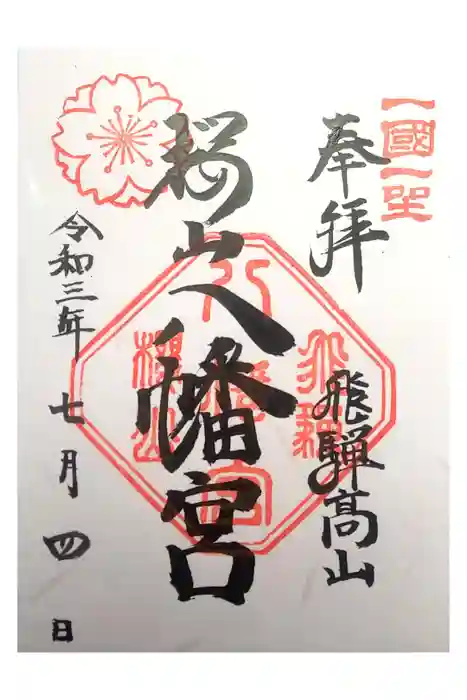 一國一宮
奉拝
飛騨高山
飛騨
八幡宮
櫻山
桜山八幡宮
令和三年
七月四日